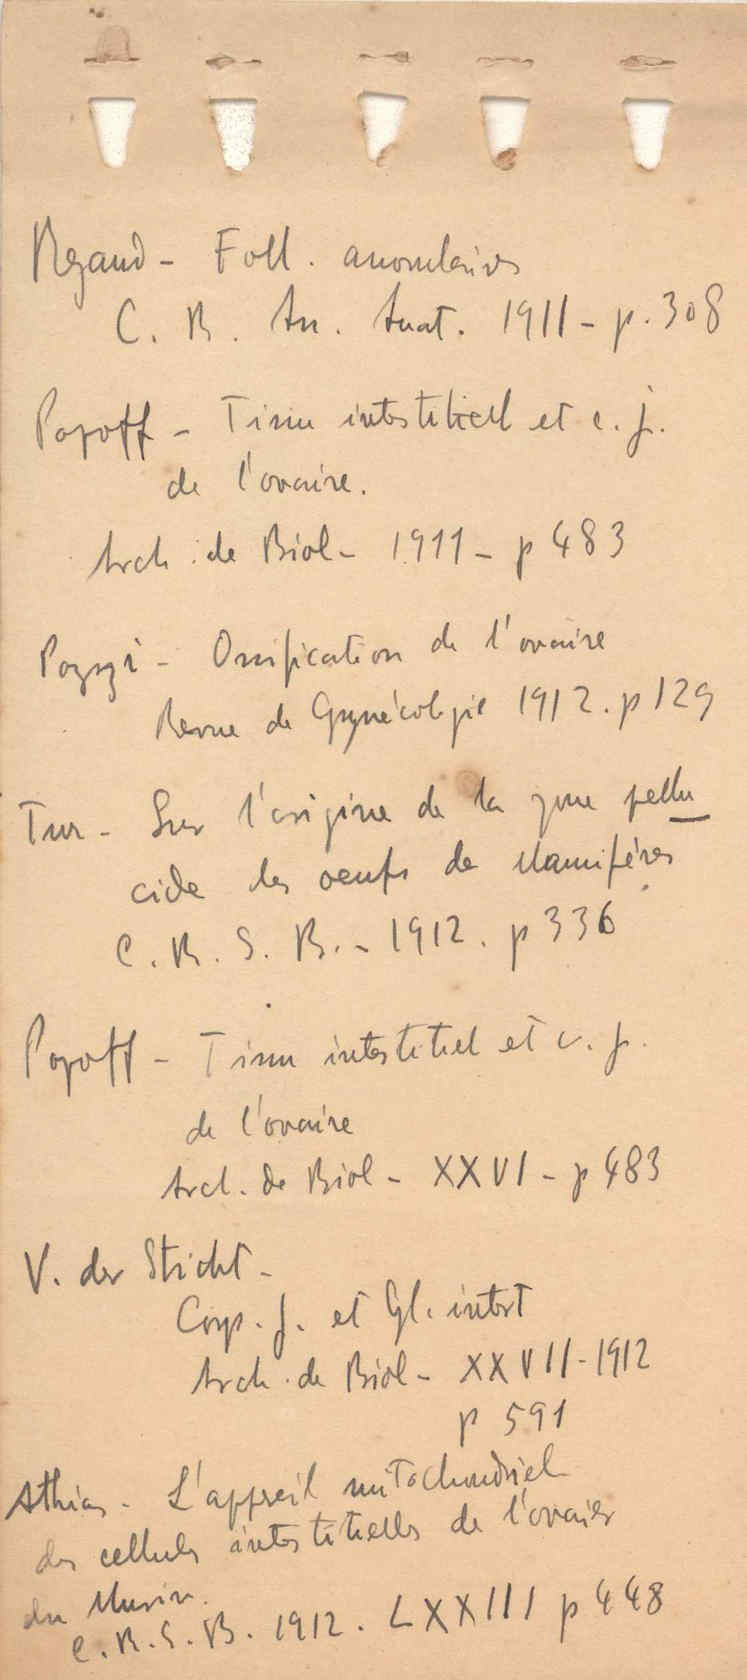 Regaud - Foll. anovulaires
C. R. An. Anat. 1911 - p. 308
Popoff - Tissu interstitiel et c. j.
de l'ovaire.
Arch. de Biol - 1911 - p 483
Pozzi - Ossification de l'ovaire
Revue de Gynécologie 1912. p 129
Tur - Sur l'origine de la zone pellu
cide des oeufs de Mamifères
C. R. S. B. - 1912. p 336
Popoff - Tissu interstitiel et c. j.
de l'ovaire
Arch. de Biol - XXVI - p 483
V. der Stricht -
Corp. j. et Gl. interst
Arch. de Biol - XXVII - 1912
p 591
Athias - L'appareil mitochondriel
des cellules interstitielles de l'ovaire
du Murin.
C. R. S. B. 1912. LXXIII p 448